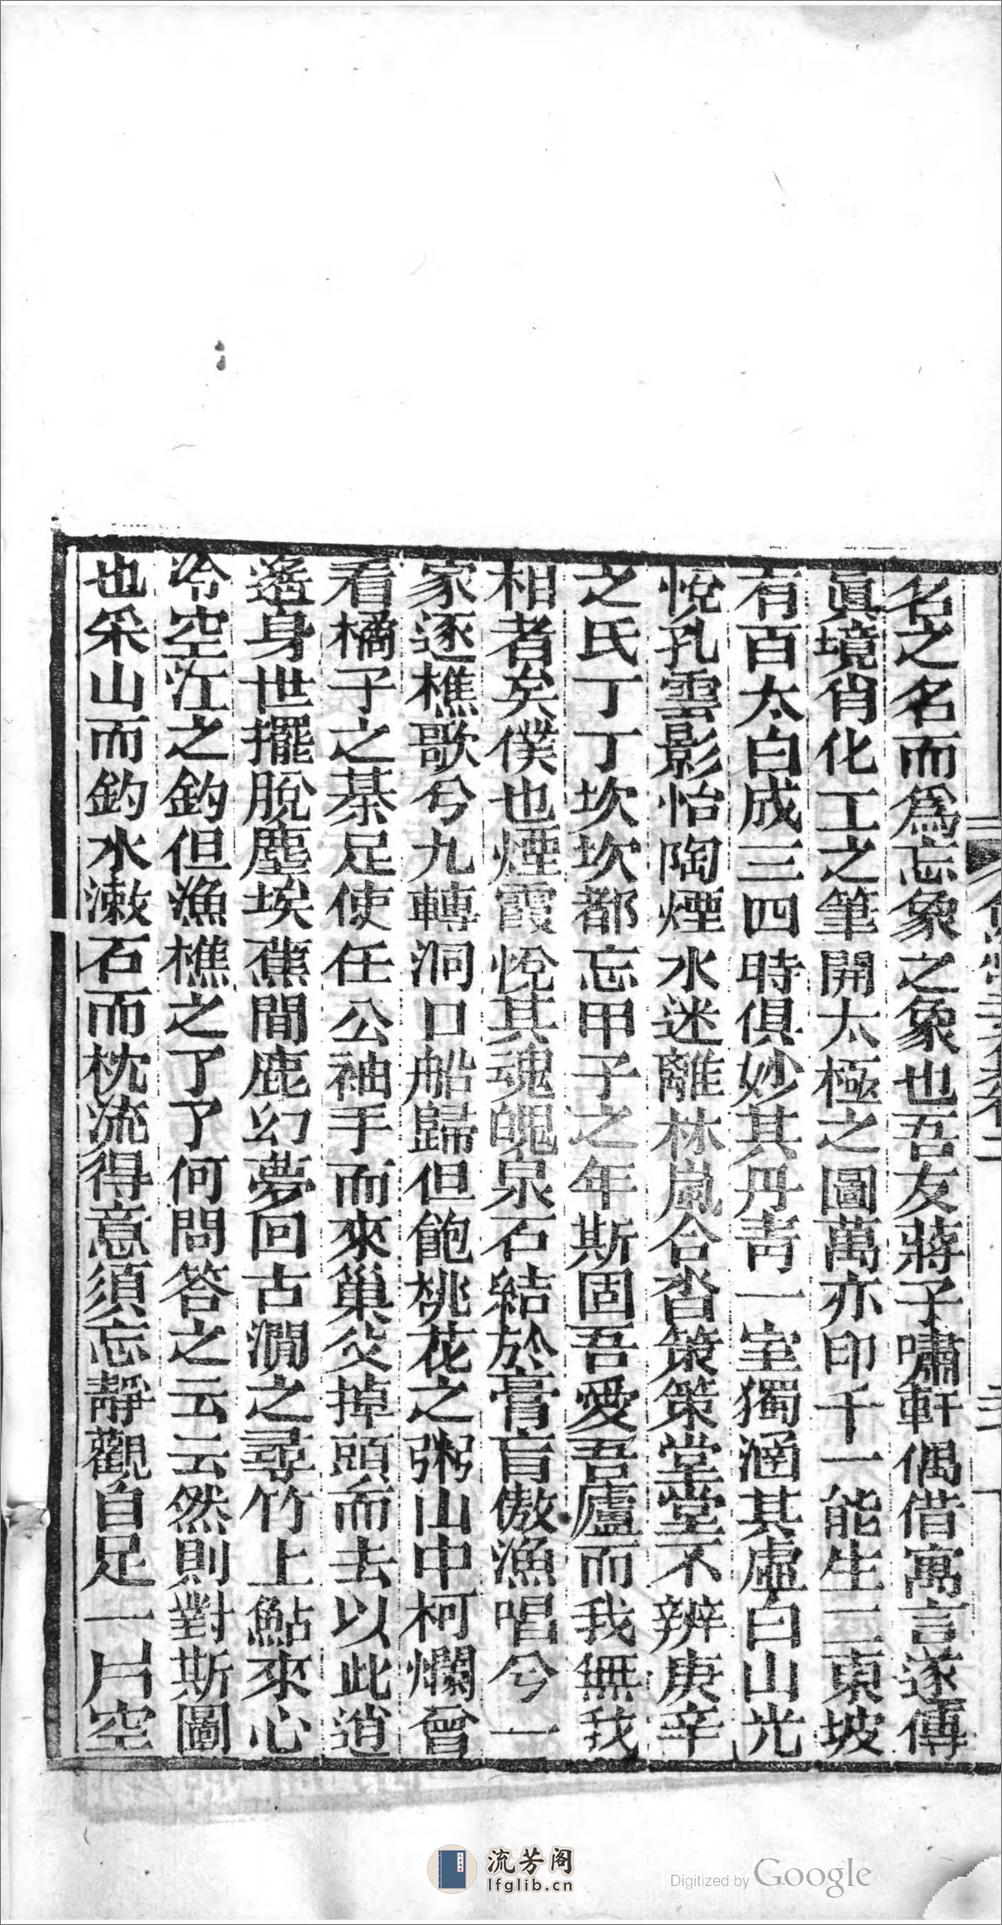 名之名而爲忘象之象也吾友蔣子嘯軒偶借寓言遂傳
眞境肖化工之筆開太極之圖萬亦印千一能生二東坡
有百太白成三四時俱妙其丹靑一室獨涵其虛白山光
悅孔雲影怡陶煙水迷離林嵐合沓策策堂堂不辨庚辛
之氏丁丁坎坎都忘甲子之年斯固吾愛吾廬而我無我
相者矣僕也煙霞悅其魂魄泉石結於膏肓傲漁唱兮一
家逐樵歌兮九轉洞口船歸但飽桃花之粥山中柯爛曾
看橘子之棊足使任公袖手而來巢父掉頭而去以此逍
遙身世擺脫塵埃蕉間鹿幻夢回古澗之尋竹上鮎來心
冷空江之釣但漁樵之了了何問答之云云然則對斯圖
也采山而釣水漱石而枕流得意須忘靜觀自足一片空
流芳阁
lfglib.cn
Digitized by Google